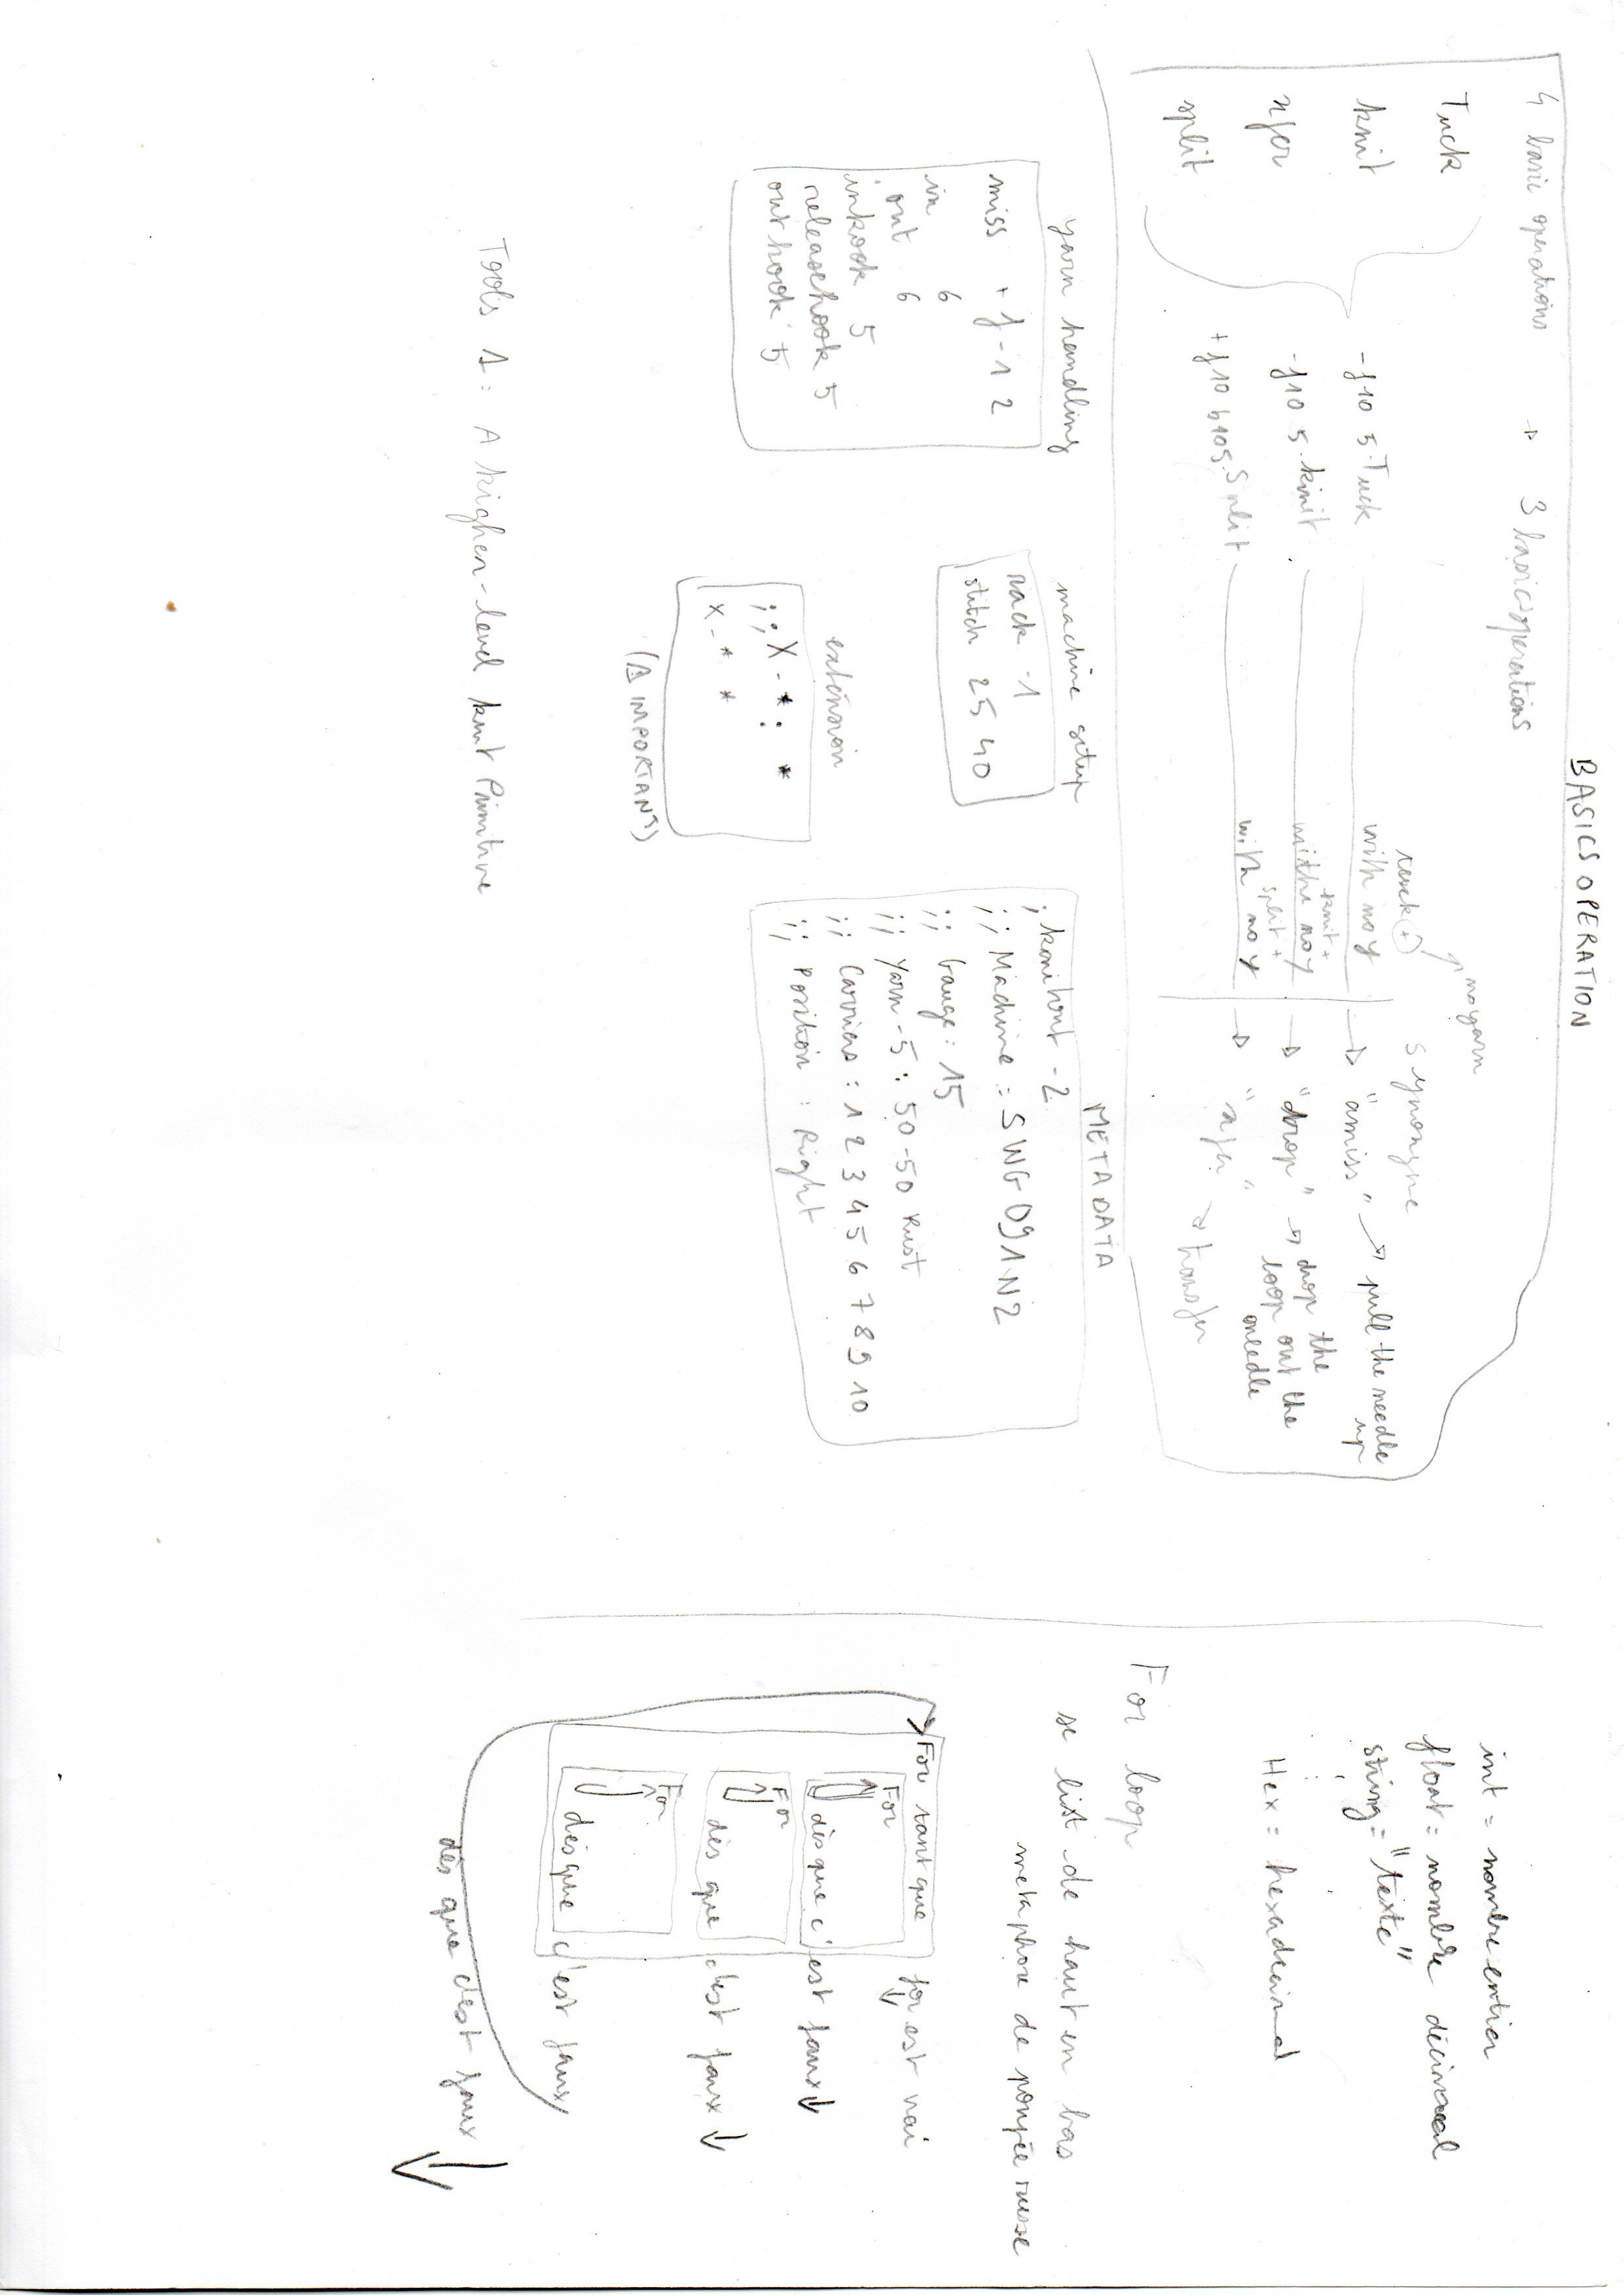 BASICS OPERATION
4 basic operations → 3 basic operations
Tuck
knit
xfer
split
-f10 5. Tuck
-f10 5. knit
+f10 b10 5. Split
tuck + ↗ no yarn
with no y
knit +
with no y
split +
with no y
synonyne
→ "amiss" → pull the needle up
→ "drop" → drop the
loop out the
needle
→ "xfer" → transfer
yarn handling
miss + f-1 2
in 6
out 6
inhook 5
releasehook 5
outhook 5
machine setup
rack -1
stitch 25 40
extension
;; X-*: *
x-* *
(⚠ IMPORTANT)
METADATA
; knitout -2
;; Machine : SWG091N2
;; Gauge : 15
;; Yarn-5 : 50-50 Rust
;; Carriers : 1 2 3 4 5 6 7 8 9 10
;; Position : Right
Tools 1 : A higher-level knit Primitive
int = nombre entier
float = nombre décimal
string = "texte"
Hex = hexadecimal
For loop
se list de haut en bas
metaphore de poupée russe
For tant que for est vrai
For
dès que c'est faux ↓
For
dès que c'est faux ↓
For
dès que c'est faux
dès que c'est faux